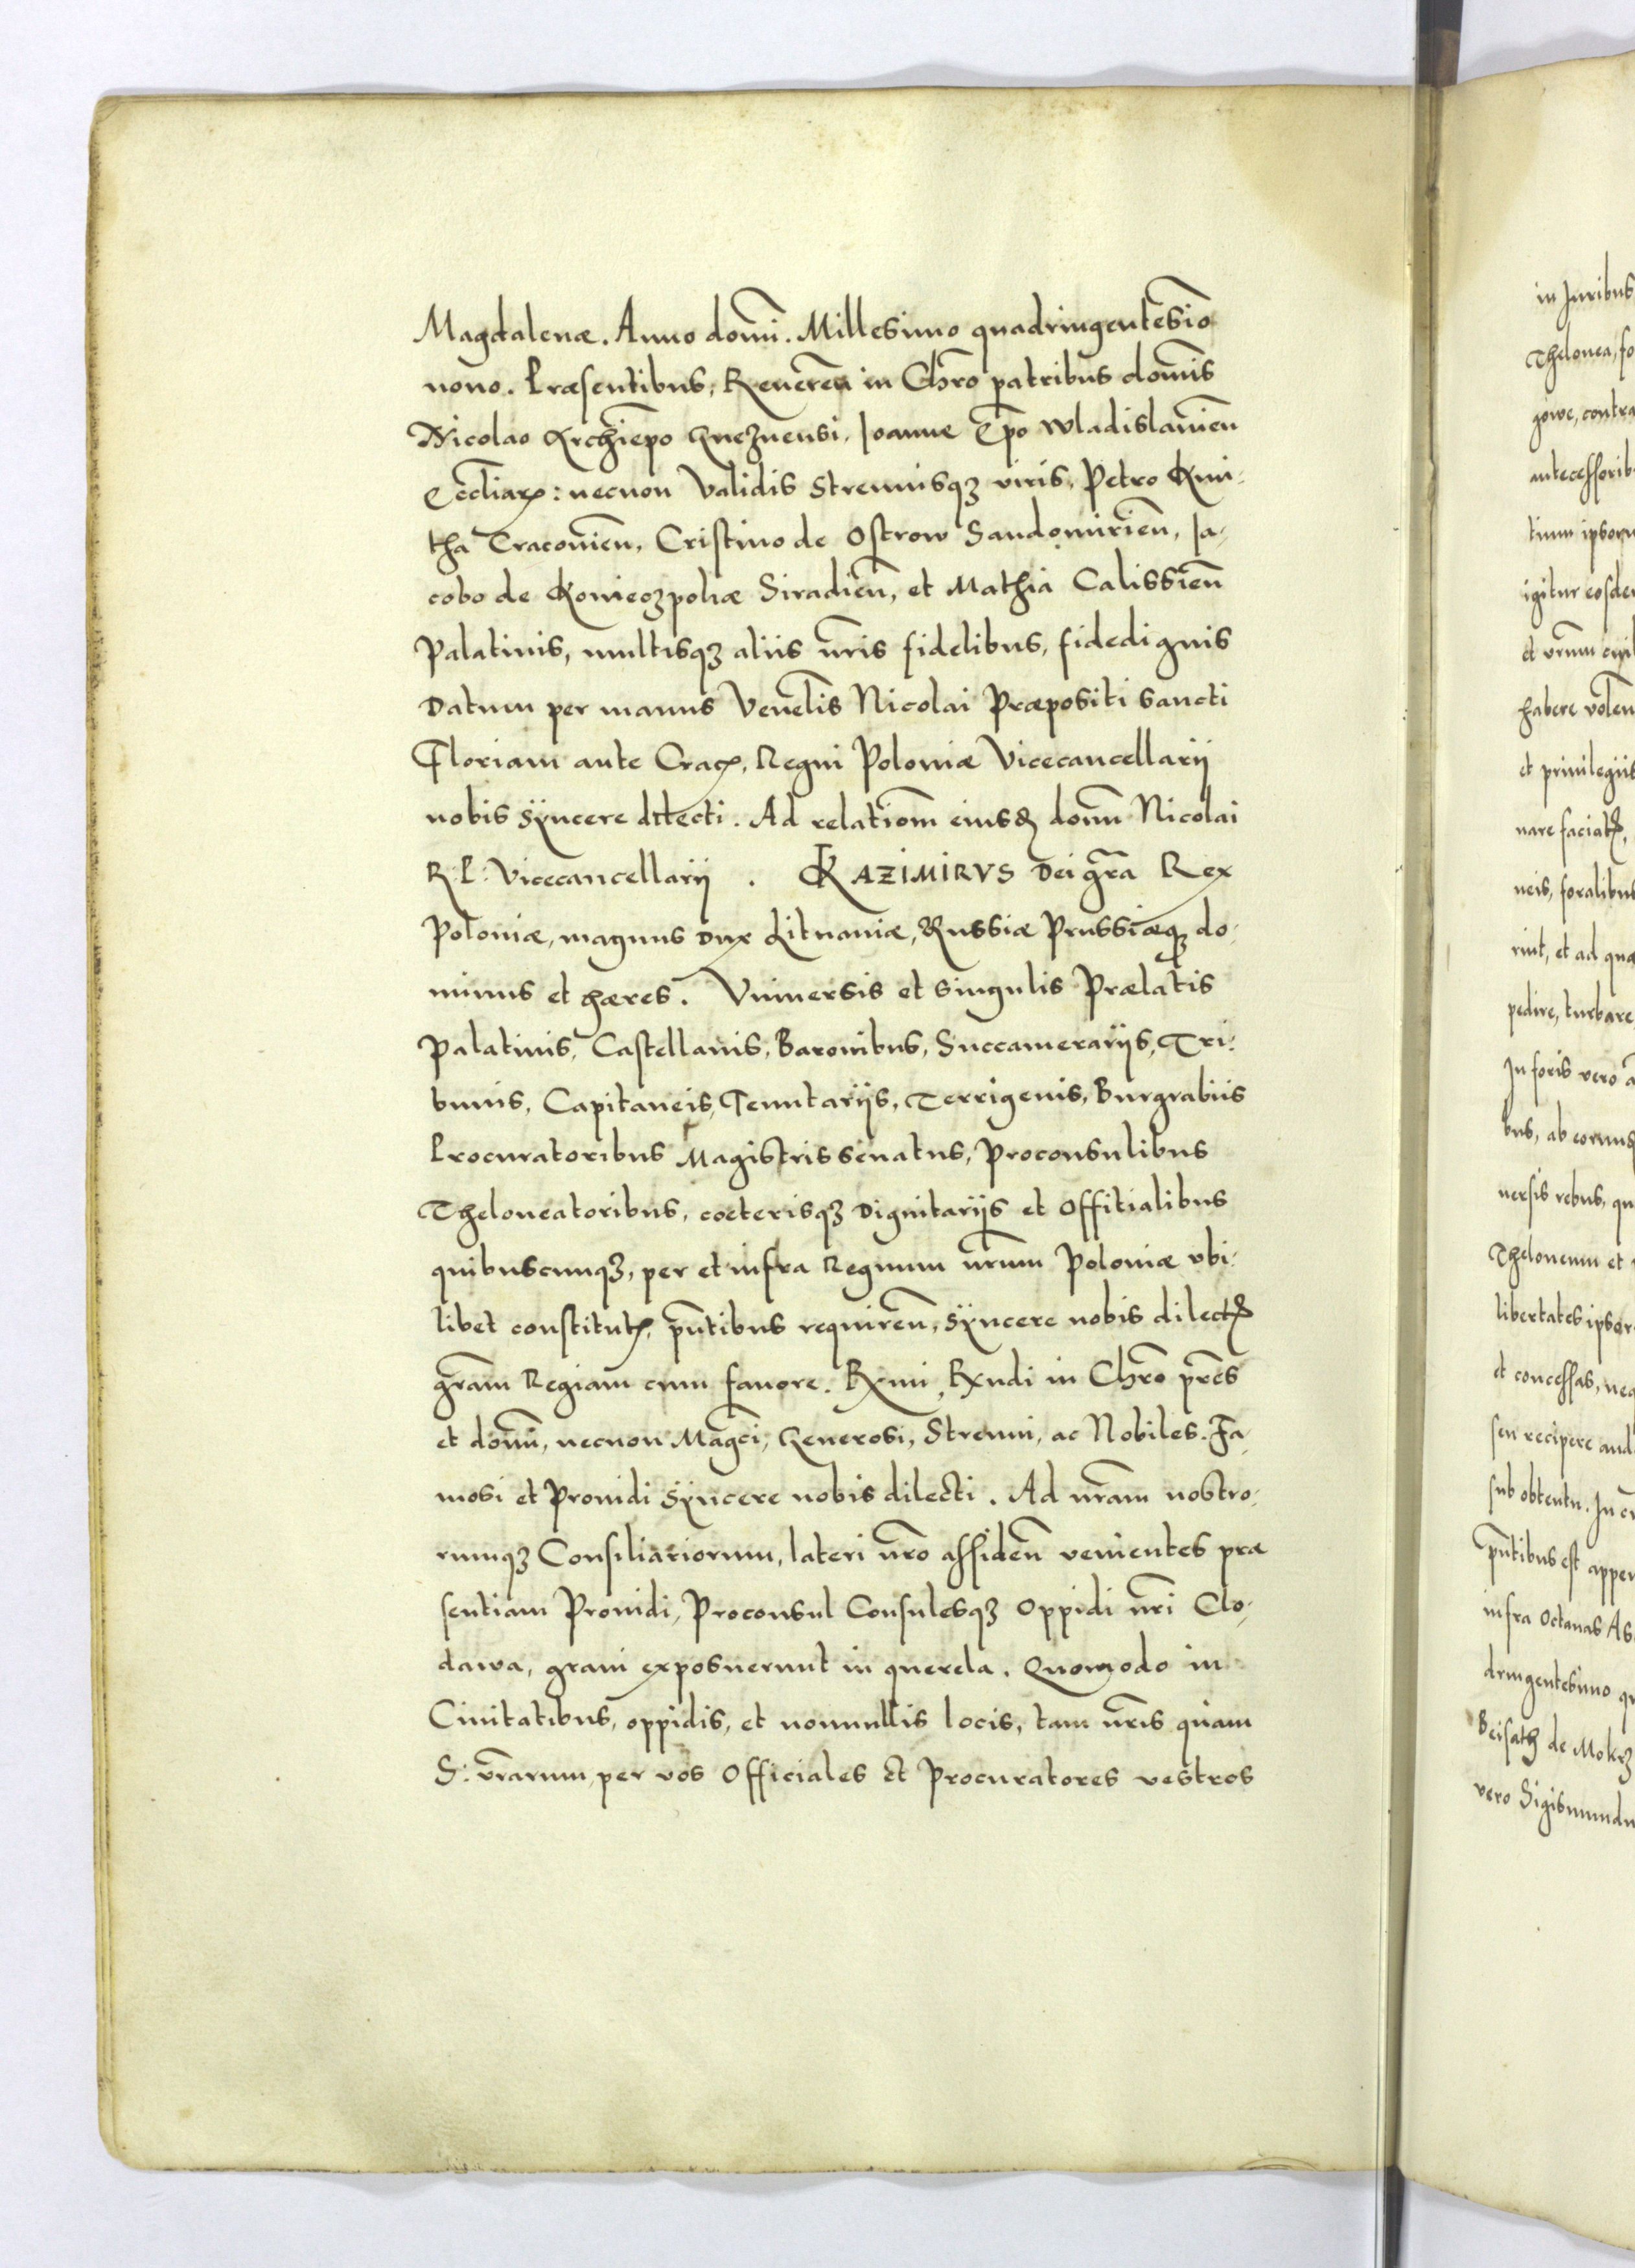 Magdalenæ. Anno domī. Millesimo quadringentesīo
nono. Præsentibus, Reuereñ in Chrō patribus domīs
Nicolao Archiepo Gneznensi, Joanne Epō Wladislauieñ
Eccliarꝝ: necnon Validis Strennuisqꝫ viris, Petro Kmi-
tha Cracouieñ, Cristino de Ostrow Sandomirieñ, Ja-
cobo de Konieczpoliæ Siradieñ, et Mathia Calissieñ
Palatinis, multisqꝫ aliis nr̄is fidelibus, fidedignis
Datum per manus Venelis Nicolai Præpositi Sancti
Floriani ante Cracꝫ, Regni Poloniæ Vicecancellarij
nobis sÿncere dilecti. Ad relatiom̄ eiusđ domi Nicolai
R. P. Vicecancellarij . KAZIMIRVS Dei gr̄a Rex
Poloniæ, magnus Dux Lituaniæ, Russiæ Prussiæqꝫ do-
minus et hæres. Vniuersis et singulis Prælatis
Palatinis, Castellanis, Baronibus, Succamerarijs, Tri-
bunis, Capitaneis, Tenutarijs, Terrigenis, Burgrabiis
Procuratoribus Magistris senatus, Proconsulibus
Theloneatoribus, coeterisqꝫ Dignitarijs et Offitialibus
quibuscunqꝫ, per et infra Regnum nr̄um Poloniæ vbi-
libet constitutꝭ, pn̄tibus requireñ, sÿncere nobis dilectꝭ
gr̄am Regiam cum fauore. Rx̄mi, Rx̄ndi in Chrō pr̄es
et domī, necnon Mag̃ci, Generosi, Strenui, ac Nobiles. Fa-
mosi et Prouidi sÿncere nobis dilecti. Ad nr̄am nostro-
rumqꝫ Consiliariorum, lateri nr̄o assideñ venientes præ
sentiam Prouidi, Proconsul Consulesqꝫ Oppidi nr̄i Clo-
dawa, graui exposuerunt in querela. Quomodo in
Ciuitatibus, oppidis, et nonnullis locis, tam nr̄is quam
S: vr̄arum, per vos Officiales et Procuratores vestros
in Juribus
Thelonea, fo
gowe, contra
antecessorib
tium ipsoru
igitur eosde
et vr̄um
habere voleñ
et priuilegiis
nare faciatꝭ,
neis, foralibus
rint, et ad qua
pedire, turbare
In foris vero a
bus, ab eorum
uersis rebus, qu
Theloneum et
libertates ipsor
et concessas, nec
seu recipere aud
sub obtentu. In
pn̄tibus est appen
infra Octauas As
dringentesimo qu
Beisath de Mokrz
vero Sigismundu